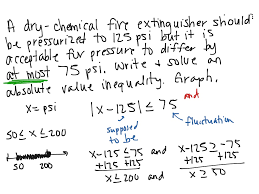 A dry-chemical fire extinguisher should
be pressurized to 125 psi but it is
acceptable for pressure to differ by
at most 75 psi. Write & solve an
absolute value inequality. Graph.
x = psi
|x-125| ≤ 75
and
supposed to be
fluctuation
50 ≤ x ≤ 200
50 200
x-125 ≤ 75 and x-125 ≥ -75
+125 +125 +125 +125
x ≤ 200 and x ≥ 50